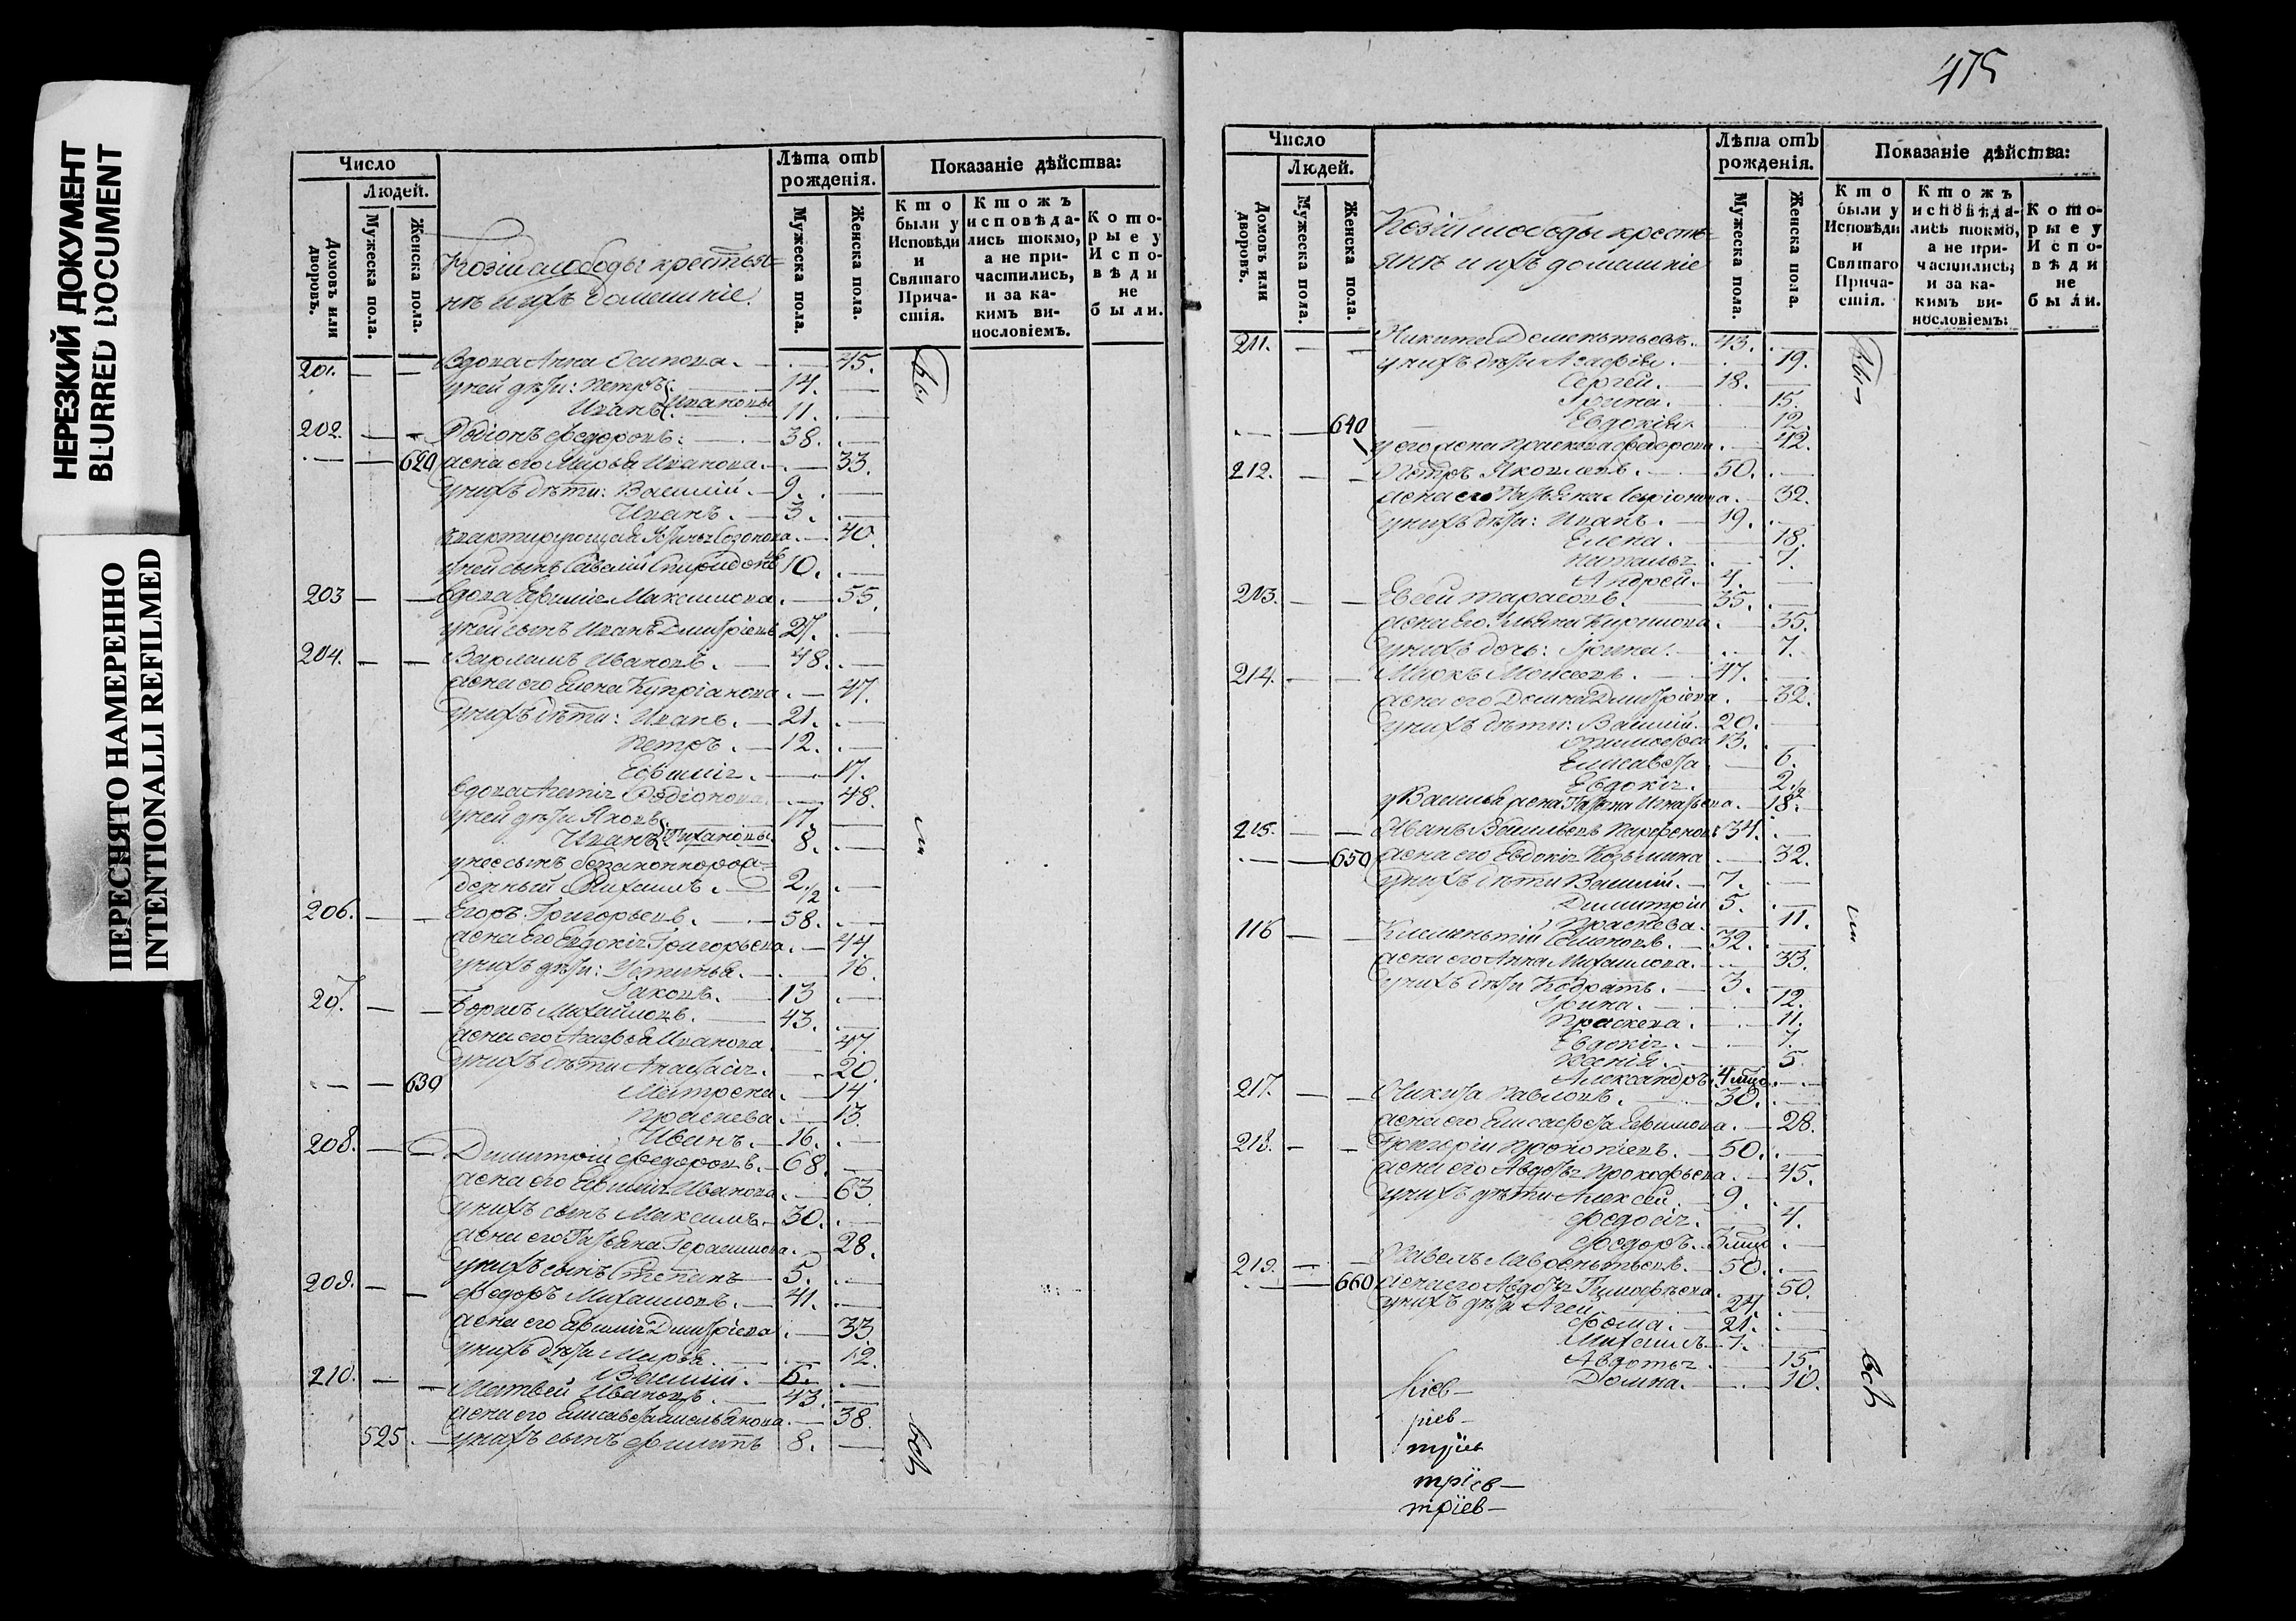 НЕРЕЗКИЙ ДОКУМЕНТ
BLURRED DOCUMENT
ПЕРЕСНЯТО НАМЕРЕННО
INTENTIONALLI REFILMED
Число
Людей.
Домовъ или дворовъ.
Мужеска пола.
Женска пола.
слободы крестья-
нѣ и ихъ домашніе.
Лѣта отъ рожденія.
Мужеска пола.
Женска пола.
Показаніе дѣйства:
Кто были у Исповѣди и Святаго Причастія.
Ктожъ исповѣдались токмо, а не причастились, и за какимъ винословіемъ.
Которые у Исповѣди не были.
201. Вдова Анна Осипова. 45. Бы
у ней дѣти: Петръ 14.
Иванъ Ивановы 11.
202. Родіонъ Федоровъ. 38.
620 жена его Марья Иванова. 33.
у нихъ дѣти: Василій. 9.
Иванъ. 3.
40.
у ней сынъ Савелій Спиридоновъ 10.
203 вдова Ефимія Максимова. 55.
у ней сынъ Иванъ Дмитріевъ 27.
204. Варламъ Ивановъ. 48.
жена его Елена Купріанова. 47.
у нихъ дѣти: Иванъ. 21.
Петръ. 12.
Ефимія. 17.
вдова Родіонова. 48.
у ней дѣти Яковъ 17.
Иванъ 8. ли
у нее сынъ беззаконнорож-
денный Михаилъ. 2 1/2
206. Егоръ Григорьевъ. 58.
жена его Евдокія Григорьева. 44.
у нихъ дѣти: Устинья. 16.
Іаковъ. 13
207. Борисъ Михайловъ. 43.
жена его Агафья Иванова. 47.
у нихъ дѣти Анастасія. 20.
630 Матрена. 14.
Праскева. 13.
Иванъ. 16.
208. Димитрій Федоровъ. 68.
жена его Ефимія Иванова. 63.
у нихъ сынъ Максимъ. 30.
жена его Татьяна Герасимова. 28.
у нихъ сынъ Степанъ 5.
209. Федоръ Михаиловъ. 41.
жена его Ефимія Дмитріева. 33.
у нихъ дѣти Марья. 12.
Василій. 6.
210. Матвей Ивановъ. 43.
жена его Елисавета Емельянова. 38.
525. у нихъ сынъ Филипъ 8. всѣ
475
Число
Людей.
Домовъ или дворовъ.
Мужеска пола.
Женска пола.
слободы крестья-
янѣ и ихъ домашніе
Лѣта отъ рожденія.
Мужеска пола.
Женска пола.
Показаніе дѣйства:
Кто были у Исповѣди и Святаго Причастія.
Ктожъ исповѣдались токмо, а не причастились; и за какимъ винословіемъ:
Которые у Исповѣди не были.
211. Никита Дементьевъ. 43. Бы-
у нихъ дѣти Агафія. 19.
Сергей. 18.
Ірина. 15.
640 Евдокія. 12.
у его жена Праскева Федорова. 42.
212. Петръ Яковлевъ. 50.
жена его Татьяна Ларіонова. 32.
у нихъ дѣти: Иванъ. 19.
Елена. 18.
Наталья. 7.
Андрей. 4.
213. Евсей Тарасовъ. 35.
жена его Ульяна Кирилова. 35.
у нихъ дочь: Ірина. 7.
214. Моисеевъ. 47.
жена его Домна Дмитріева. 32.
у нихъ дѣти: Василій. 20.
Тимофей 13.
Елисавета. 6.
Евдокія. 2 1/2
у Василья жена Татьяна Игнатьева. 18.
215. Иванъ Васильевъ Парфеновъ 34.
650 жена его Евдокія Козьмина 32.
у нихъ дѣти Василій. 7.
Димитрій 5.
Праскева. 11. ли
116 Климентій Семеновъ. 32.
жена его Анна Михаилова. 33.
у нихъ дѣти Кодратъ. 3.
Ірина. 12.
Праскева. 11.
Евдокія. 7.
Ксенія. 5.
Александръ. 4
217. Никита Павловъ. 30.
жена его Елисавета Ефимова. 28.
218. Григорій Прокопіевъ. 50.
жена его Авдотья Прокофьева. 45.
у нихъ дѣти Алексей. 9.
Федосія. 4.
Федоръ. 3
219. Павелъ Лаврентьевъ. 50.
660 жена его Авдотья Тимофеева. 50.
у нихъ дѣти Агей 24.
Фома. 21.
Михаилъ. 7.
Авдотья. 15.
Домна. 10. всѣ
кіев-
ріев-
тріев
тріев-
тріев-